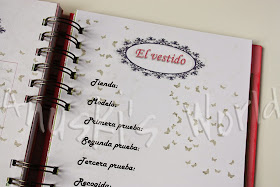 El vestido
Tienda:
Modelo:
Primera prueba:
Segunda prueba:
Tercera prueba:
Recogida: